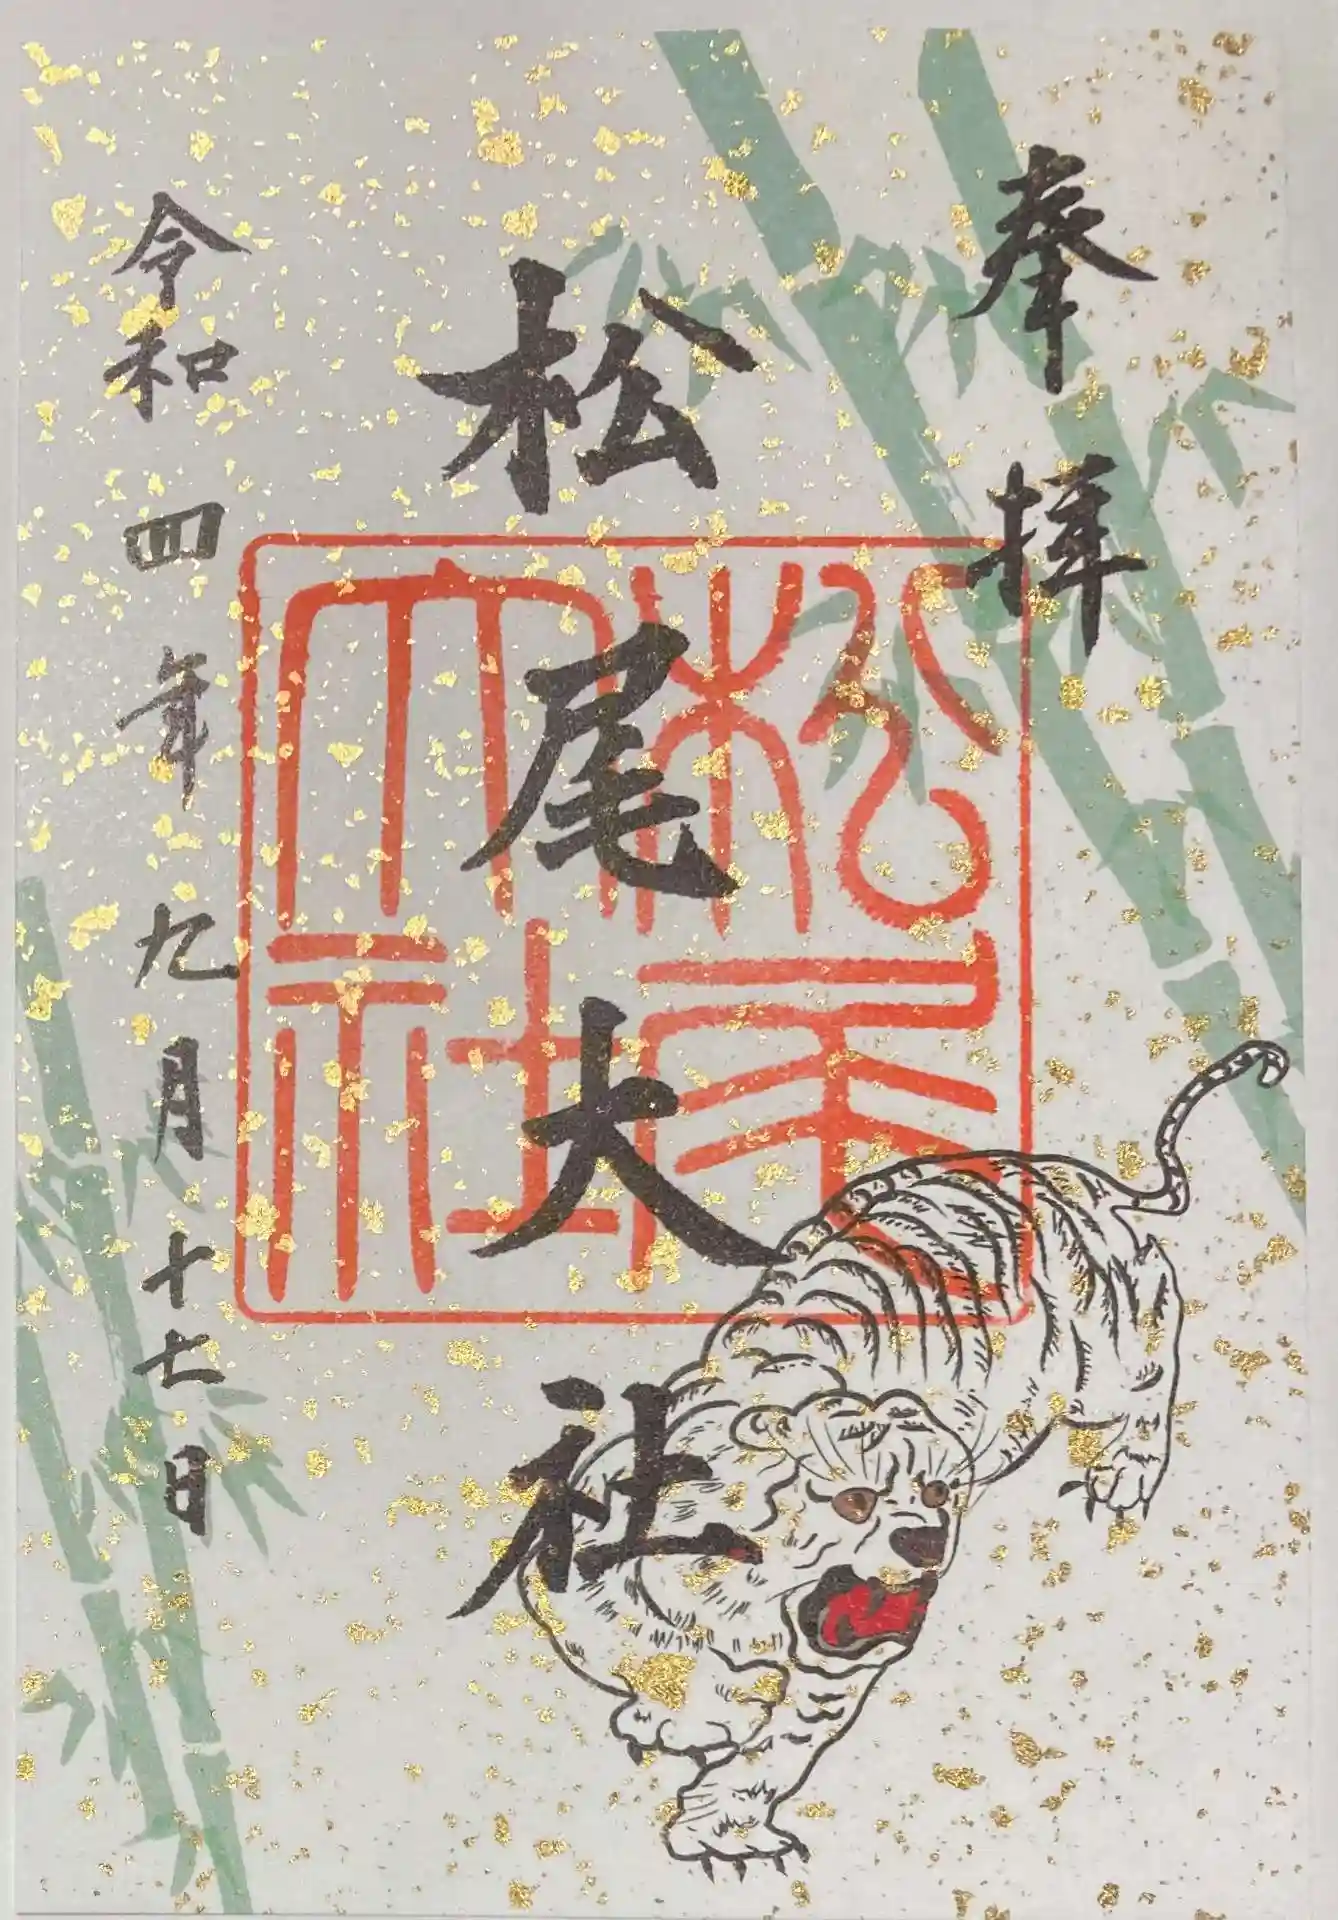 奉拝
松尾大社
松尾大社
令和四年九月十七日